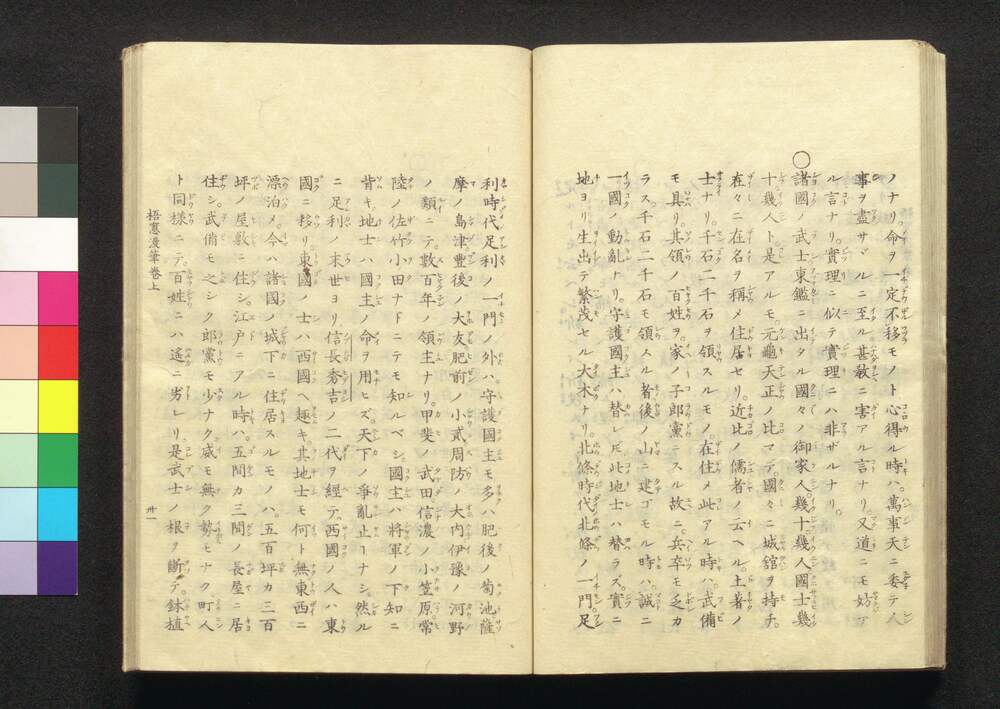 ノナリ。命ヲ一定不移モノト心得ル時ハ。萬事天ニ委テ人
事ヲ盡サヾルニ至ル。甚敎ニ害アル言ナリ。又道ニモ妨
ル言ナリ。實理ニ似テ實理ニハ非ザルナリ。
〇諸國ノ武士東鑑ニ出タル國々ノ御家人。幾十幾人國士幾
十幾人ト是アルモ。元龜天正ノ比マデ。國々ニ城舘ヲ持チ。
在々ニ在名ヲ稱メ住居セリ。近比ノ儒者ノ云ヘル。土著ノ
士ナリ。千石二千石ヲ領スルモノ。在住メ此アル時ハ。武備
モ具リ。其領ノ百姓ヲ。家ノ子郎黨ニスル故ニ。兵卒モ乏カ
ラス。千石二千石モ領スル者。後ノ山ニ建ゴモル時ハ。誠ニ
一國ノ動亂ナリ。守護國主ハ替レ𪜈此地士ハ替ラズ。實ニ
地ヨリ生出テ繁茂セル大木ナリ。北條時代北條ノ一門。足
利時代足利ノ一門ノ外ハ。守護國主モ多ハ肥後ノ菊池薩
摩ノ島津。豐後ノ大友肥前ノ小貳周防ノ大内伊豫ノ河野
ノ類ニテ。數百年ノ領主ナリ。甲斐ノ武田信濃ノ小笠原常
陸ノ佐竹小田ナドニテモ知ルベシ。國主ハ將軍ノ下知ニ
背キ。地士ハ國主ノ命ヲ用ヒズ。天下ノ爭亂止ーナシ。然ル
ニ足利ノ末世ヨリ。信長秀吉ノ二代ヲ經テ。西國ノ人ハ東
國ニ移リ。東國ノ士ハ西國ヘ趣キ。其地士モ何ト無東西ニ
漂泊メ。今ハ諸國ノ城下ニ住居スルモノハ。五百坪カ三百
坪ノ屋敷ニ住シ。江戸ニアル時ハ。五間カ三間ノ長屋ニ居
住シ。武備モ乏シク郎黨モ少ナク。威モ無ク勢モナク町人
ト同樣ニテ。百姓ニハ遙ニ劣レリ。是武士ノ根ヲ斷テ。鉢植
梧窻漫筆卷上
卅一